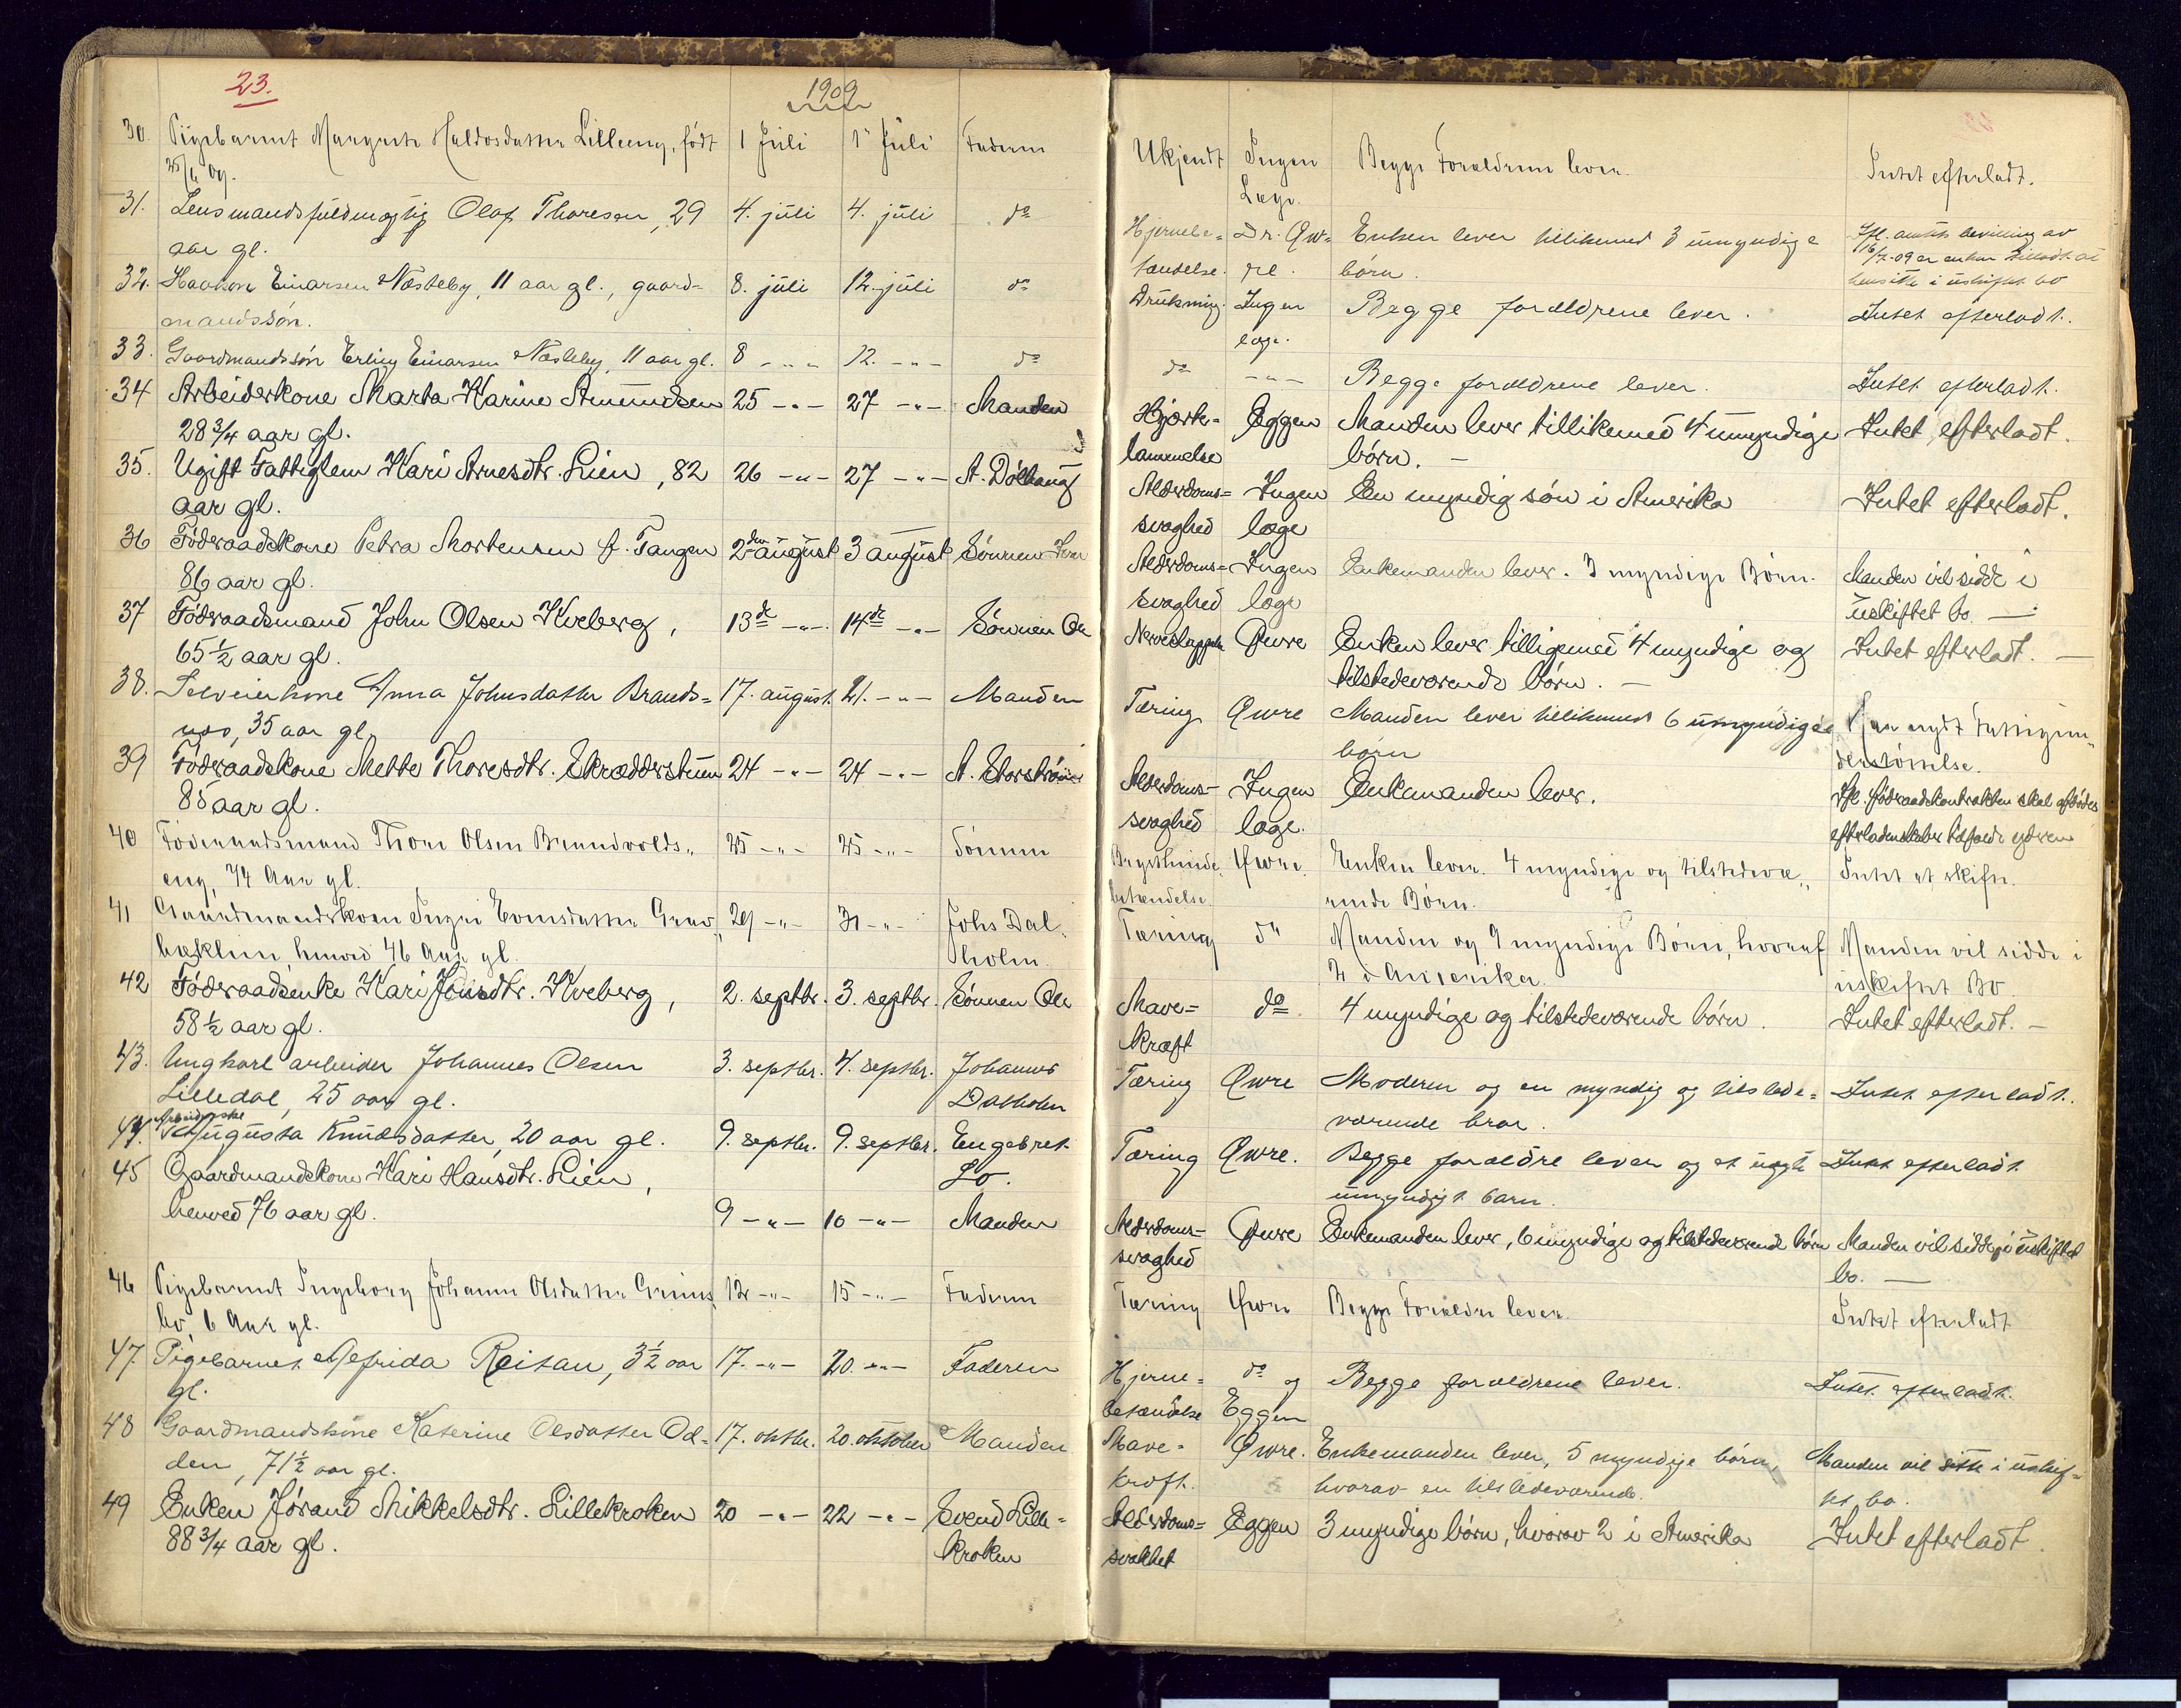 23.
1909
30. Pigebarnet Margrete Haldosdatter Lilleeng, født 1 Juli 1 Juli Faderen
25/6 09.
31. Lensmandsfuldmægtig Olaf Thoresen, 29 4. juli 4. juli do
aar gl.
32. Haakon Einarsen Næsteby, 11 aar gl., gaard- 8. juli 12. juli do
mandssøn.
33. Gaardmandssøn Erling Einarsen Næsteby, 11 aar gl. 8 - " - 12. - " - do
34 Arbeiderkone Marta Karine Amundsen 25 - " - 27 - " - Manden
28 3/4 aar gl.
35. Ugift Fattiglem Kari Arnesdtr. Lien, 82 26 - " - 27 - " - A. Dölhaug
aar gl.
36 Föderaadskone Petra Mortensen f. Tangen 2den august 3 august Sönnen Iver
86 aar gl.
37 Föderaadsmand John Olsen Kveberg, 13de - " - 14de - " - Sönnen Ole
65 1/2 aar gl.
38. Selveierkone Anna Johnsdatter Brands= 17. august. 21. - " - Manden
nes, 35 aar gl.
39 Föderaadskone Mette Thoresdtr. Skrædderstuen 24 - " - 24 - " - A. Storström
85 aar gl.
40 Föderaadsmand Thore Olsen Brændvolds„ 25 - " - 25 - " - Sönnen
eng, 74 Aar gl.
41 Gaardmandskone Ingri Evensdatter Grav„ 29 - " - 31 - " - Johs Dal„
bæklien, henved 46 Aar gl. holm.
42 Föderaadsenke Kari Jonsdtr. Kveberg, 2. septbr. 3. septbr. Sönnen Ole
58 1/2 aar gl.
43. Ungkarl arbeider Johannes Olsen 3. septbr. 4. septbr. Johannes
Lilledal, 25 aar gl. Dalholm
44. Arbeiderske Augusta Knudsdatter, 20 aar gl. 9. septbr. 9. septbr. Engebret
45 Gaardmandskone Kari Hansdtr. Lien, Lo.
henved 76 aar gl. 9 - " - 10 - " - Manden
46 Pigebarnet Ingeborg Johanne Olsdatter Grims„ 12 - " - 15 - " - Faderen
bo, 6 Aar gl.
47. Pigebarnet Alfrida Reitan, 3 1/2 aar 17. - " - 20. - " - Faderen
gl.
48 Gaardmandskone Katerine Olsdatter Od= 17. oktbr. 20. oktober Manden
den, 71 1/2 aar gl.
49 Enken Jörand Mikkelsdtr. Lillekroken 20 - " - 22 - " - Svend Lille=
88 3/4 aar gl. kroken
Ukjendt Ingen Begge Forældrene lever. Intet efterladt.
Læge.
Hjernebe= Dr. Qw= Enken lever tillikemed 3 umyndige Ifl. amtets bevilling av
tændelse. re. børn. 16/7-09 er enken tilladt at
hensitte i uskiftet bo
Drukning. Ingen Begge forældrene lever. Intet efterladt.
læge.
do - " - Begge forældrene lever. Intet efterladt.
Hjerte= Eggen Manden lever tillikemed 4 umyndige Intet efterladt.
lammelse børn. -
Alderdoms= Ingen En myndig søn i Amerika Intet efterladt.
svaghed læge
Alderdoms= Ingen Enkemanden lever. 3 myndige Börn. Manden vil sidde i
svaghed læge uskiftet bo. -
Qwre Enken lever tilligemed 4 myndige og Intet efterladt. -
tilstedeværende børn. -
Tæring Qwre Manden lever tillikemed 6 umyndige Har nydt Fattigun„
børn derstöttelse.
Alderdoms= Ingen Enkemanden lever. Ifl. föderaadskontrakten skal afdödes
svaghed læge. efterladenskaber tilfalde yderen
Brysthinde„ Qwre. Enken lever. 4 myndige og tilstedevæ„ Intet at skifte.
betændelse. rende Börn.
Tæring do Manden og 9 myndige Börn, hvoraf Manden vil sidde i
2 i Amerika. uskiftet Bo.
Mave= do. 4 myndige og tilstedeværende børn. Intet efterladt. -
kræft
Tæring Qwre Moderen og en myndig og tilstede= Intet efterladt.
værende bror.
Tæring Qwre. Begge forældre lever og et uægte Intet efterladt.
umyndigt barn.
Alderdoms= Qwre Enkemanden lever, 6 myndige og tilstedeværende børn Manden vil sidde i uskiftet
svaghed bo. -
Tæring Qwre Begge Forældre lever. Intet efterladt
Hjerne= do og Begge forældrene lever. Intet efterladt.
betændelse Eggen
Mave= Qwre. Enkemanden lever, 5 myndige børn, Manden vil sitte i uskif=
kræft. hvorav en tilstedeværende. tet bo.
Alderdoms= Eggen 3 myndige børn, hvorav 2 i Amerika Intet efterladt.
svakhet